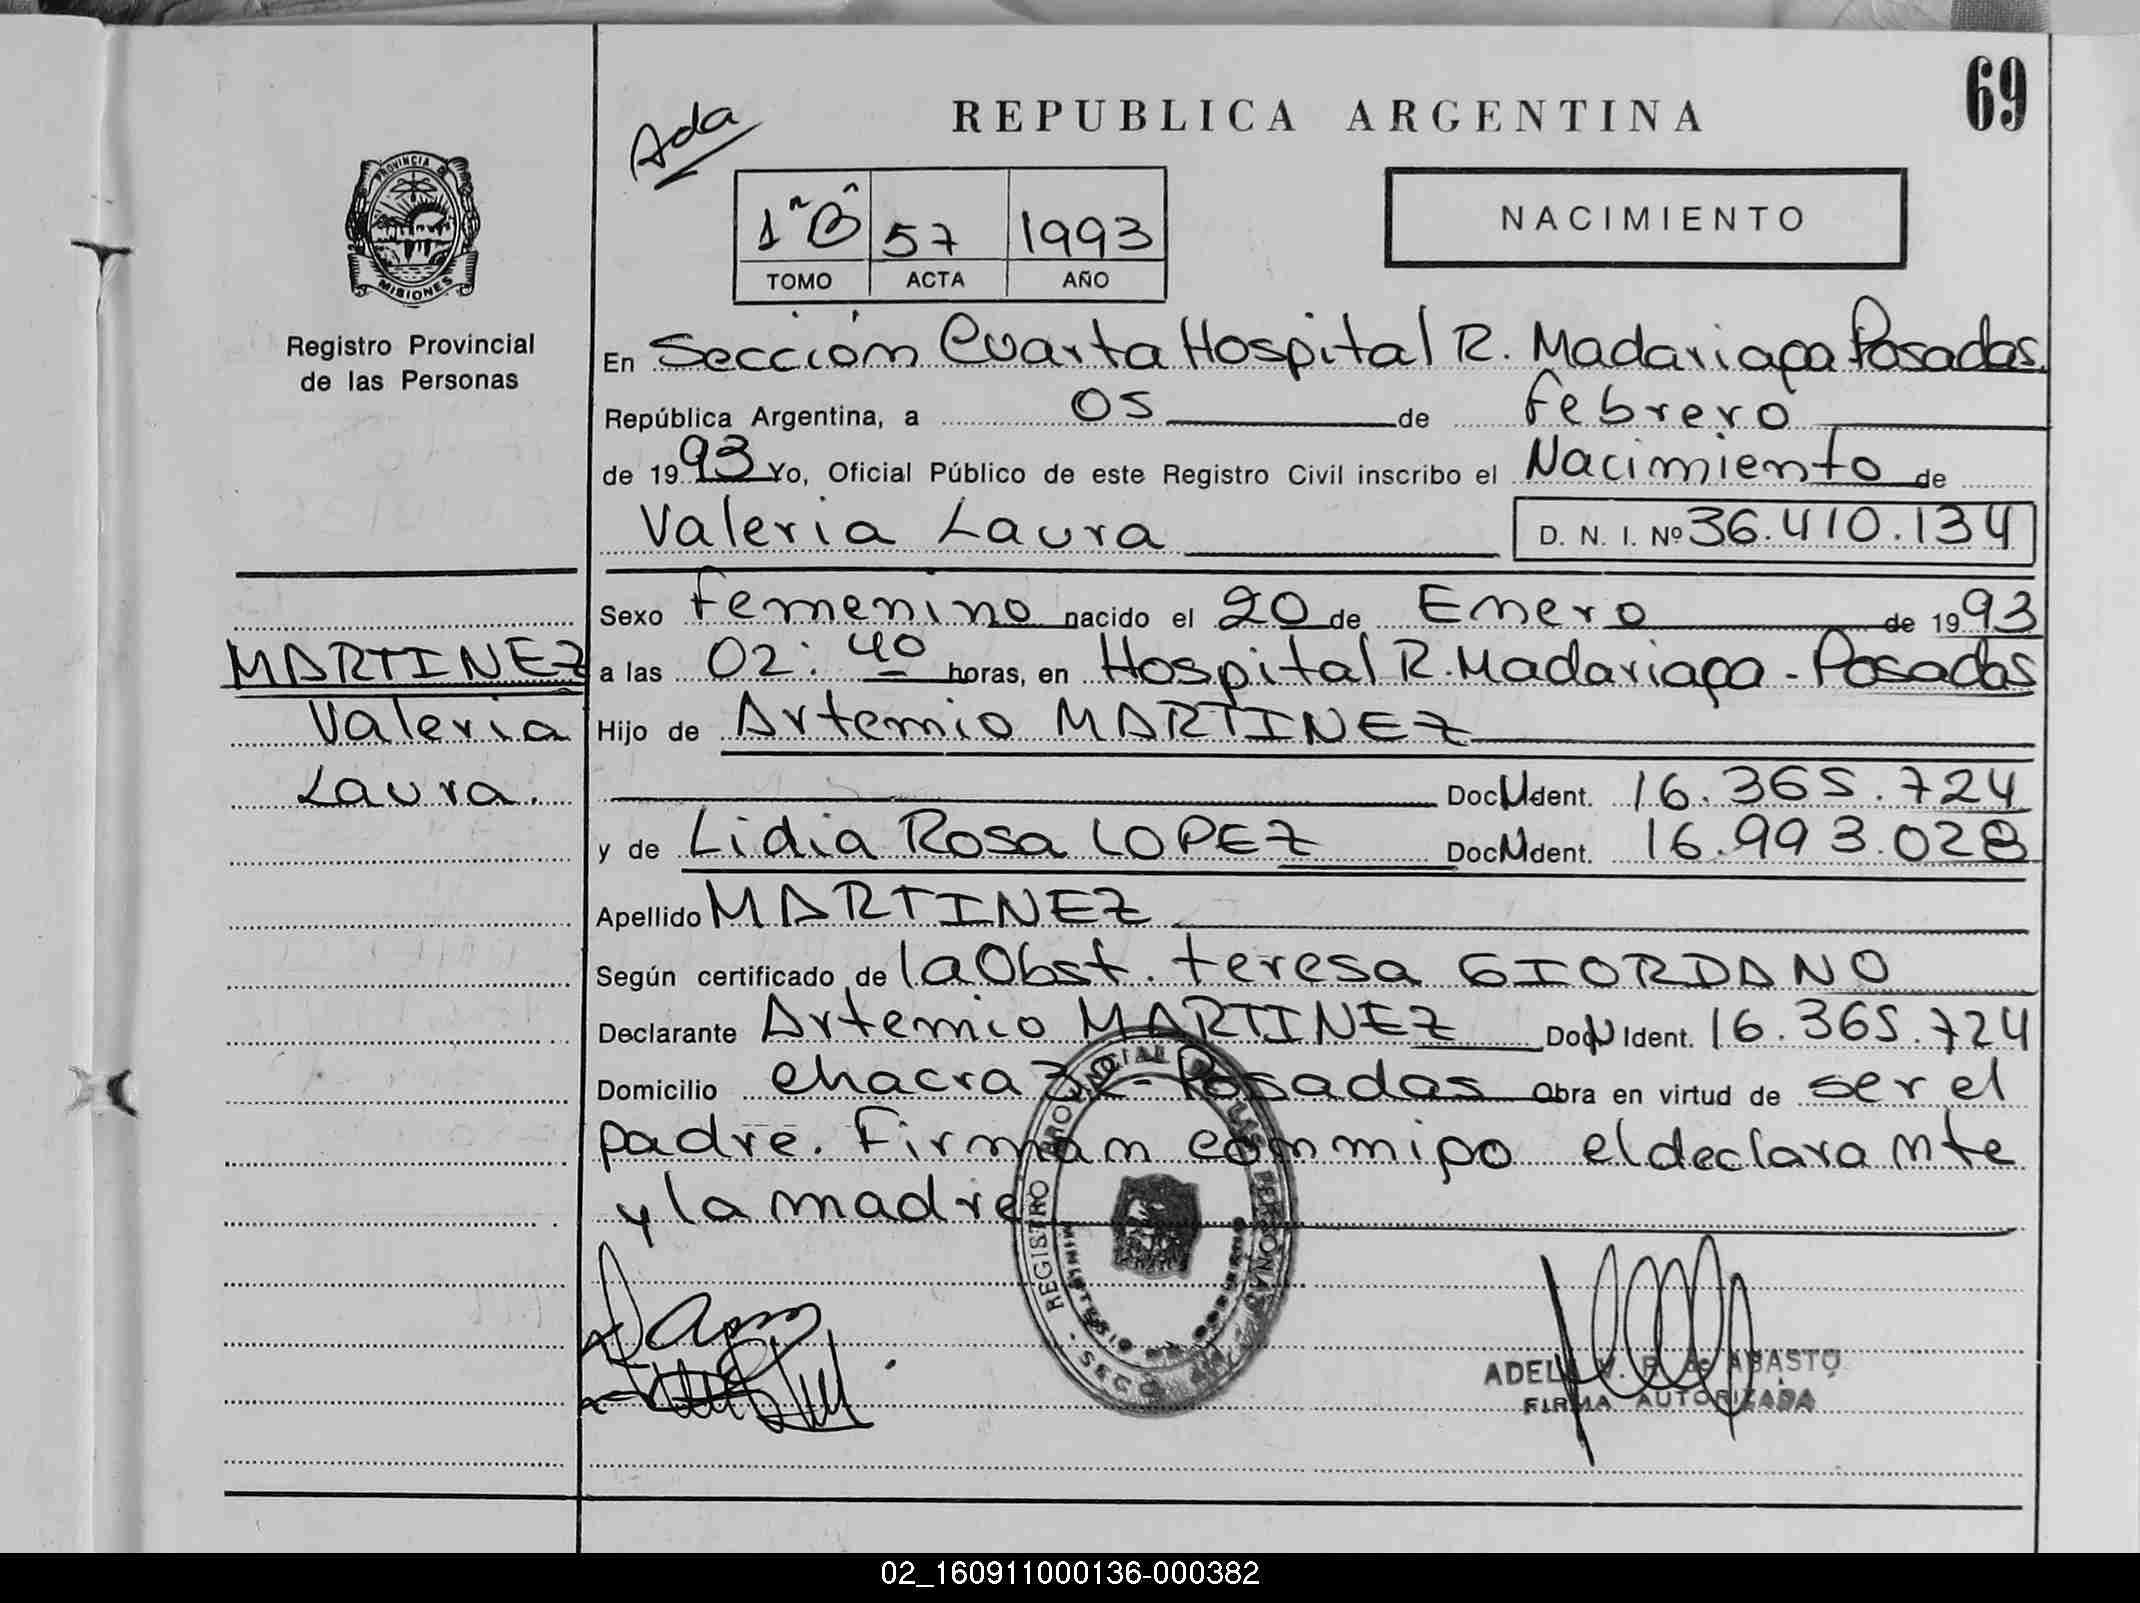 69
Ada
REPUBLICA ARGENTINA
PROVINCIA DE
MISIONES
1º"B" 57 1993
TOMO ACTA AÑO
NACIMIENTO
Registro Provincial
de las Personas
En Sección Cuarta Hospital R. Madariaga Posadas.
República Argentina, a 05 de Febrero
de 1993 Yo, Oficial Público de este Registro Civil inscribo el Nacimiento de
Valeria Laura D. N. I. Nº 36.410.134
Sexo Femenino nacido el 20 de Enero de 1993
MARTINEZ
Valeria
Laura.
a las 02:40 horas, en Hospital R. Madariaga - Posadas
Hijo de Artemio MARTINEZ
Doc. N Ident. 16.365.724
y de Lidia Rosa LOPEZ Doc. N Ident. 16.993.028
Apellido MARTINEZ
Según certificado de la Obst. teresa GIORDANO
Declarante Artemio MARTINEZ Doc N Ident. 16.365.724
Domicilio chacra 32 - Posadas Obra en virtud de ser el
padre. Firman conmigo el declarante
y la madre
REGISTRO PROVINCIAL DE LAS PERSONAS
MINISTERIO DE GOBIERNO
FIRMA AUTORIZADA
02_160911000136-000382